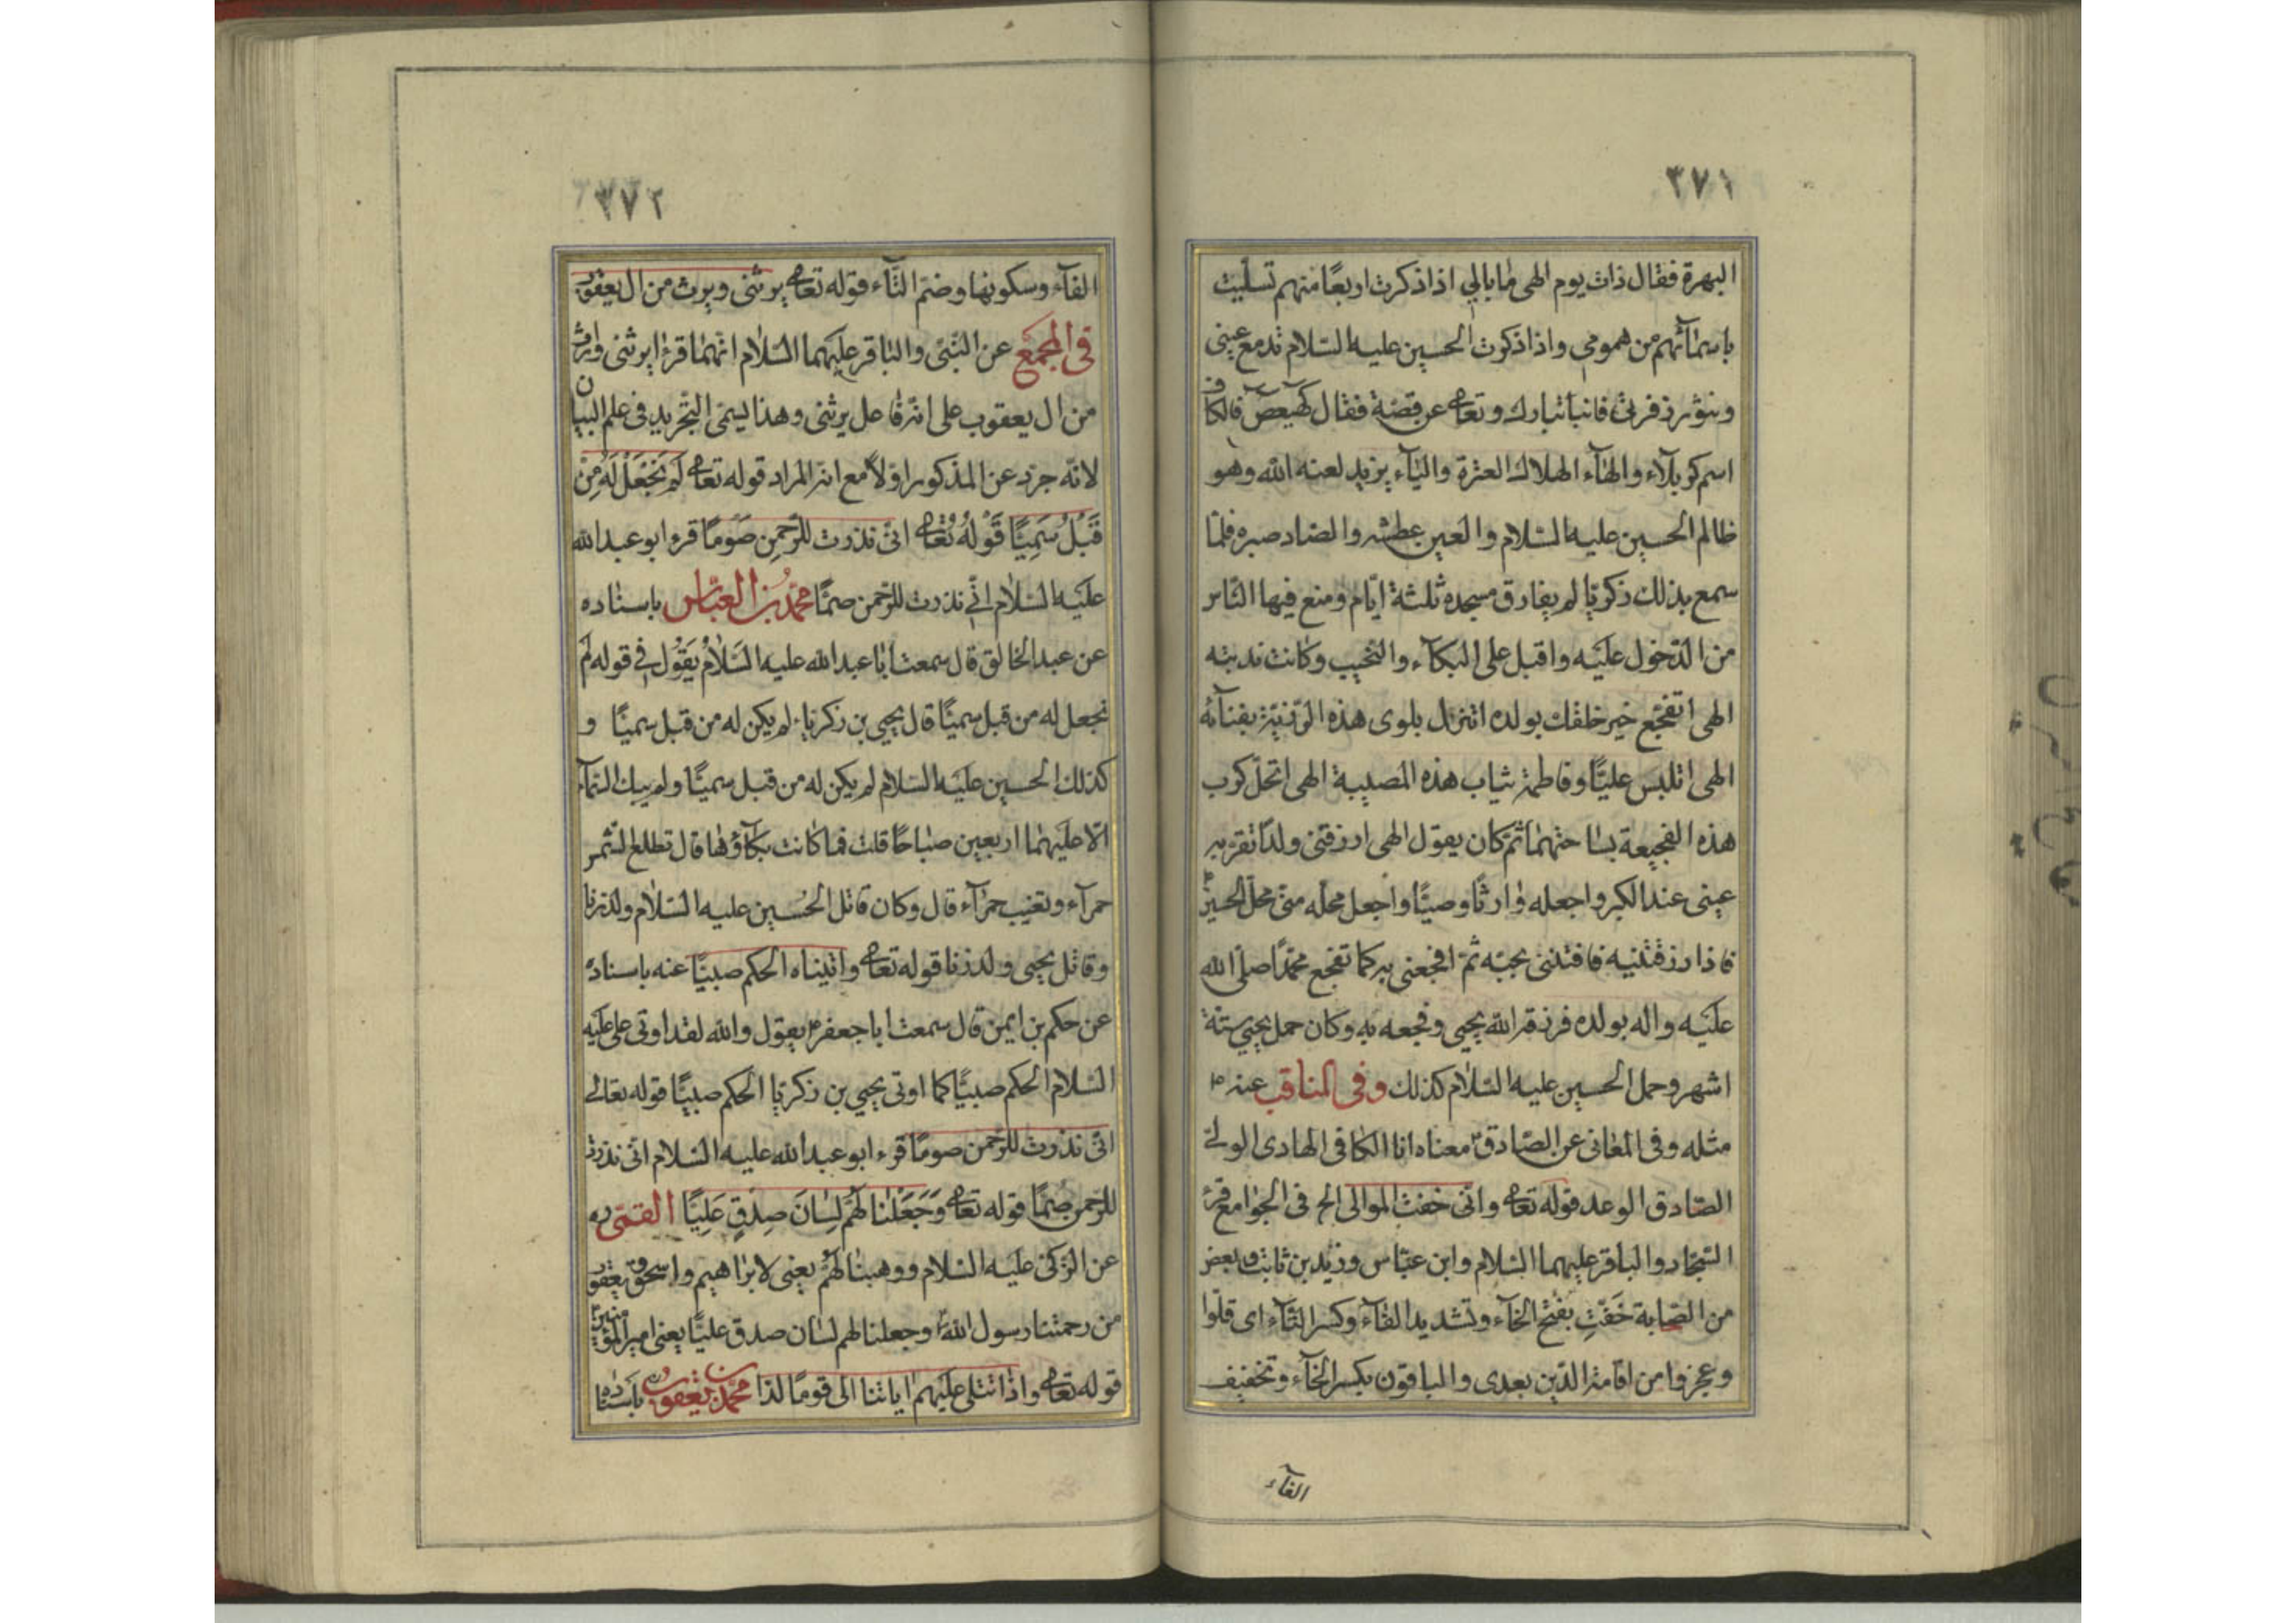 ٣٧١
البهرة فقال ذات يوم الهى ما بالي اذا ذكرت اربعًا منهم تسلّيت
باسمآئهم من همومي واذا ذكرت الحسين عليه السّلام تدمع عينى
وتثور زفرتى فانبأ تبارك وتعا عن قصّة فقال كهيعص فالكاف
اسم كربلآء والهآء الهلاك العترة واليآء يزيد لعنه الله وهو
ظالم الحسين عليه السّلام والعين عطشه والصّاد صبره فلمّا
سمع بذلك زكريّا لم يفارق مسجده ثلثة ايّام ومنع فيها النّاس
من الدّخول عليه واقبل على البكآء والنحيب وكانت ندبته
الهى اتفجّع خير خلقك بولده اتنزل بلوى هذه الرّزيّة بفنآئه
الهى اتلبس عليًّا وفاطمة ثياب هذه المصيبة الهى اتحلّ كرب
هذه الفجيعة بساحتهما ثمّ كان يقول الهى ارزقنى ولدًا تقرّ به
عينى عند الكبر واجعله وارثًا وصيًّا واجعل محلّه منّى محلّ الحسين
فاذا رزقتنيه فافتنّى بحبّه ثمّ افجعنى به كما تفجع محمّدًا صلّى الله
عليه واله بولده فرزقه الله يحيى وفجعه به وكان حمل يحيى ستة
اشهر وحمل الحسين عليه السّلام كذلك وفى المناقب عنه م
مثله وفى المعانى عن الصّادق م معناه انا الكافى الهادى الولى
الصّادق الوعد قوله تعا وانّى خفت الموالى الخ فى الجوامع قرئ
السّجّاد والباقر عليهما السّلام وابن عبّاس وزيد بن ثابت وبعض
من الصّحابة خَفَّتِ بفتح الخآء وتشديد الفآء وكسر التّآء اى قلّوا
وعجزوا من اقامة الدّين بعدى والباقون بكسر الخآء وتخفيف
الفآء
٣٧٢
الفآء وسكونها وضمّ التّآء قوله تعا يرثنى ويرث من ال يعقوب
فى المجمع عن النّبىّ والباقر عليهما السّلام انّهما قرءا يرثنى وارث
من ال يعقوب على انّه فاعل يرثنى وهذا يسمّى التّجريد فى علم البيان
لانّه جرّد عن المذكور اوّلاً مع انّه المراد قوله تعا لَم نَجْعَلْ لَهُ مِنْ
قَبْلُ سَمِيًّا قَوْلُهُ تُعا انّى نذرت للرّحمنِ صَوْمًا قرء ابو عبد الله
عليه السّلام انّي نذرت للرّحمن صمتًا محمّد بن العبّاس باسناده
عن عبد الخالق قال سمعت ابا عبد الله عليه السّلام يقول فى قوله لم
نجعل له من قبل سميًّا قال يحيى بن زكريّا لم يكن له من قبل سميًّا و
كذلك الحسين عليه السّلام لم يكن له من قبل سميًّا ولم يبك السّمآء
الّا عليهما اربعين صباحًا قلت فما كانت بكآؤها قال تطلع الشّمس
حمرآء وتغيب حمرآء قال وكان قاتل الحسين عليه السّلام ولد زنا
وقاتل يحيى ولد زنا قوله تعا واتيناه الحكم صبيًّا عنه باسناده
عن حكم بن ايمن قال سمعت ابا جعفر م يقول والله لقد اوتى على عليه
السّلام الحكم صبيًّا كما اوتى يحيى بن زكريّا الحكم صبيًّا قوله تعالى
انّى نذرت للرّحمن صومًا قرء ابو عبد الله عليه السّلام انّى نذرت
للرّحمن صُمتًا قوله تعا وَجَعَلْنا لَهُمْ لِسَانَ صِدْقٍ عَلِيًّا القمّى ره
عن الزّكىّ عليه السّلام ووهبنا لهم يعنى لابراهيم واسحق ويعقوب
من رحمتنا رسول الله وجعلنا لهم لسان صدق عليًّا يعنى امير المؤمنين
قوله تعا واذا تتلى عليهم اياتنا الى قومًا لدّا محمّد بن يعقوب باسناده